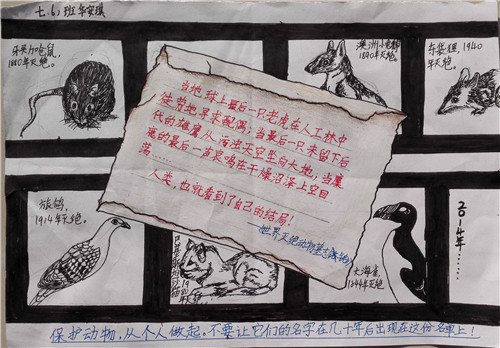 七.(6)班 华安琪
1880年灭绝。
澳洲小
1890年灭绝。
东袋狸, 1940
年灭绝。
当地球上最后一只老虎在人工林中
徒劳地寻求配偶;当最后一只未留下后
代的雄鹰从污浊天空坠向大地;当麋
鹿的最后一声哀鸣在干燥沼泽上空回
荡……
人类,也就看到了自己的结局!
《世界灭绝动物墓志铭》
旅鸽,
1914年灭绝。
大海雀,
1844年灭绝。
2014年……
保护动物,从个人做起。不要让它们的名字在几十年后出现在这份名单上!